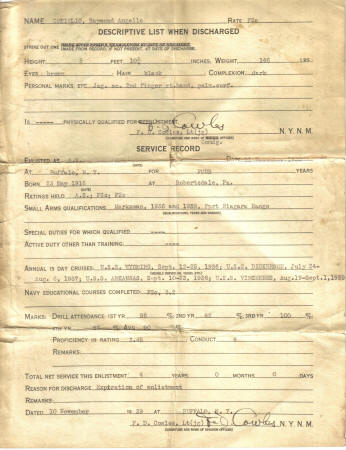 NAME CORIELLO, Raymond Angelo RATE F2c
DESCRIPTIVE LIST WHEN DISCHARGED
STRIKE OUT ONE
MADE FROM RECORD IF NOT PRESENT, AT DATE OF DISCHARGE.
HEIGHT 5 FEET 10½ INCHES, WEIGHT 146 LBS.
EYES brown HAIR black COMPLEXION dark
PERSONAL MARKS ETC Jag. sc. 2nd finger rt.hand, palm.surf.
IS ----- PHYSICALLY QUALIFIED FOR
F. D. Cowles, Lt(jg) N.Y.N.M.
Comdg.
SERVICE RECORD
ENLISTED AS A.S.
AT Buffalo, N. Y. FOR FOUR YEARS
BORN 23 May 1916 AT Robertsdale, Pa.
RATINGS HELD A.S.; F3c; F2c
SMALL ARMS QUALIFICATIONS Marksman, 1936 and 1938, Fort Niagara Range
SPECIAL DUTIES FOR WHICH QUALIFIED -----
ACTIVE DUTY OTHER THAN TRAINING -----
ANNUAL IS DAY CRUISES U.S.S. WYOMING, Sept. 12-26, 1936; U.S.S. July 24-
Aug. 6, 1937; U.S.S. ARKANSAS, Sept. 10-23, 1938; U.S.S. VINCENNES, Aug.19-Sept.1,1939
NAVY EDUCATIONAL COURSES COMPLETED F3c, F2c
MARKS: DRILL ATTENDANCE 1ST YR 98 % 2ND YR 92 % 3RD YR 100 %
4TH YR % AVG 90 %
PROFICIENCY IN RATING 3.45 CONDUCT 4
REMARKS:
TOTAL NET SERVICE THIS ENLISTMENT 4 YEARS 0 MONTHS 0 DAYS
REASON FOR DISCHARGE Expiration of enlistment
REMARKS
DATED 10 November 19 39 AT BUFFALO, N. Y.
F. D. Cowles, Lt(jg) N.Y.N.M.